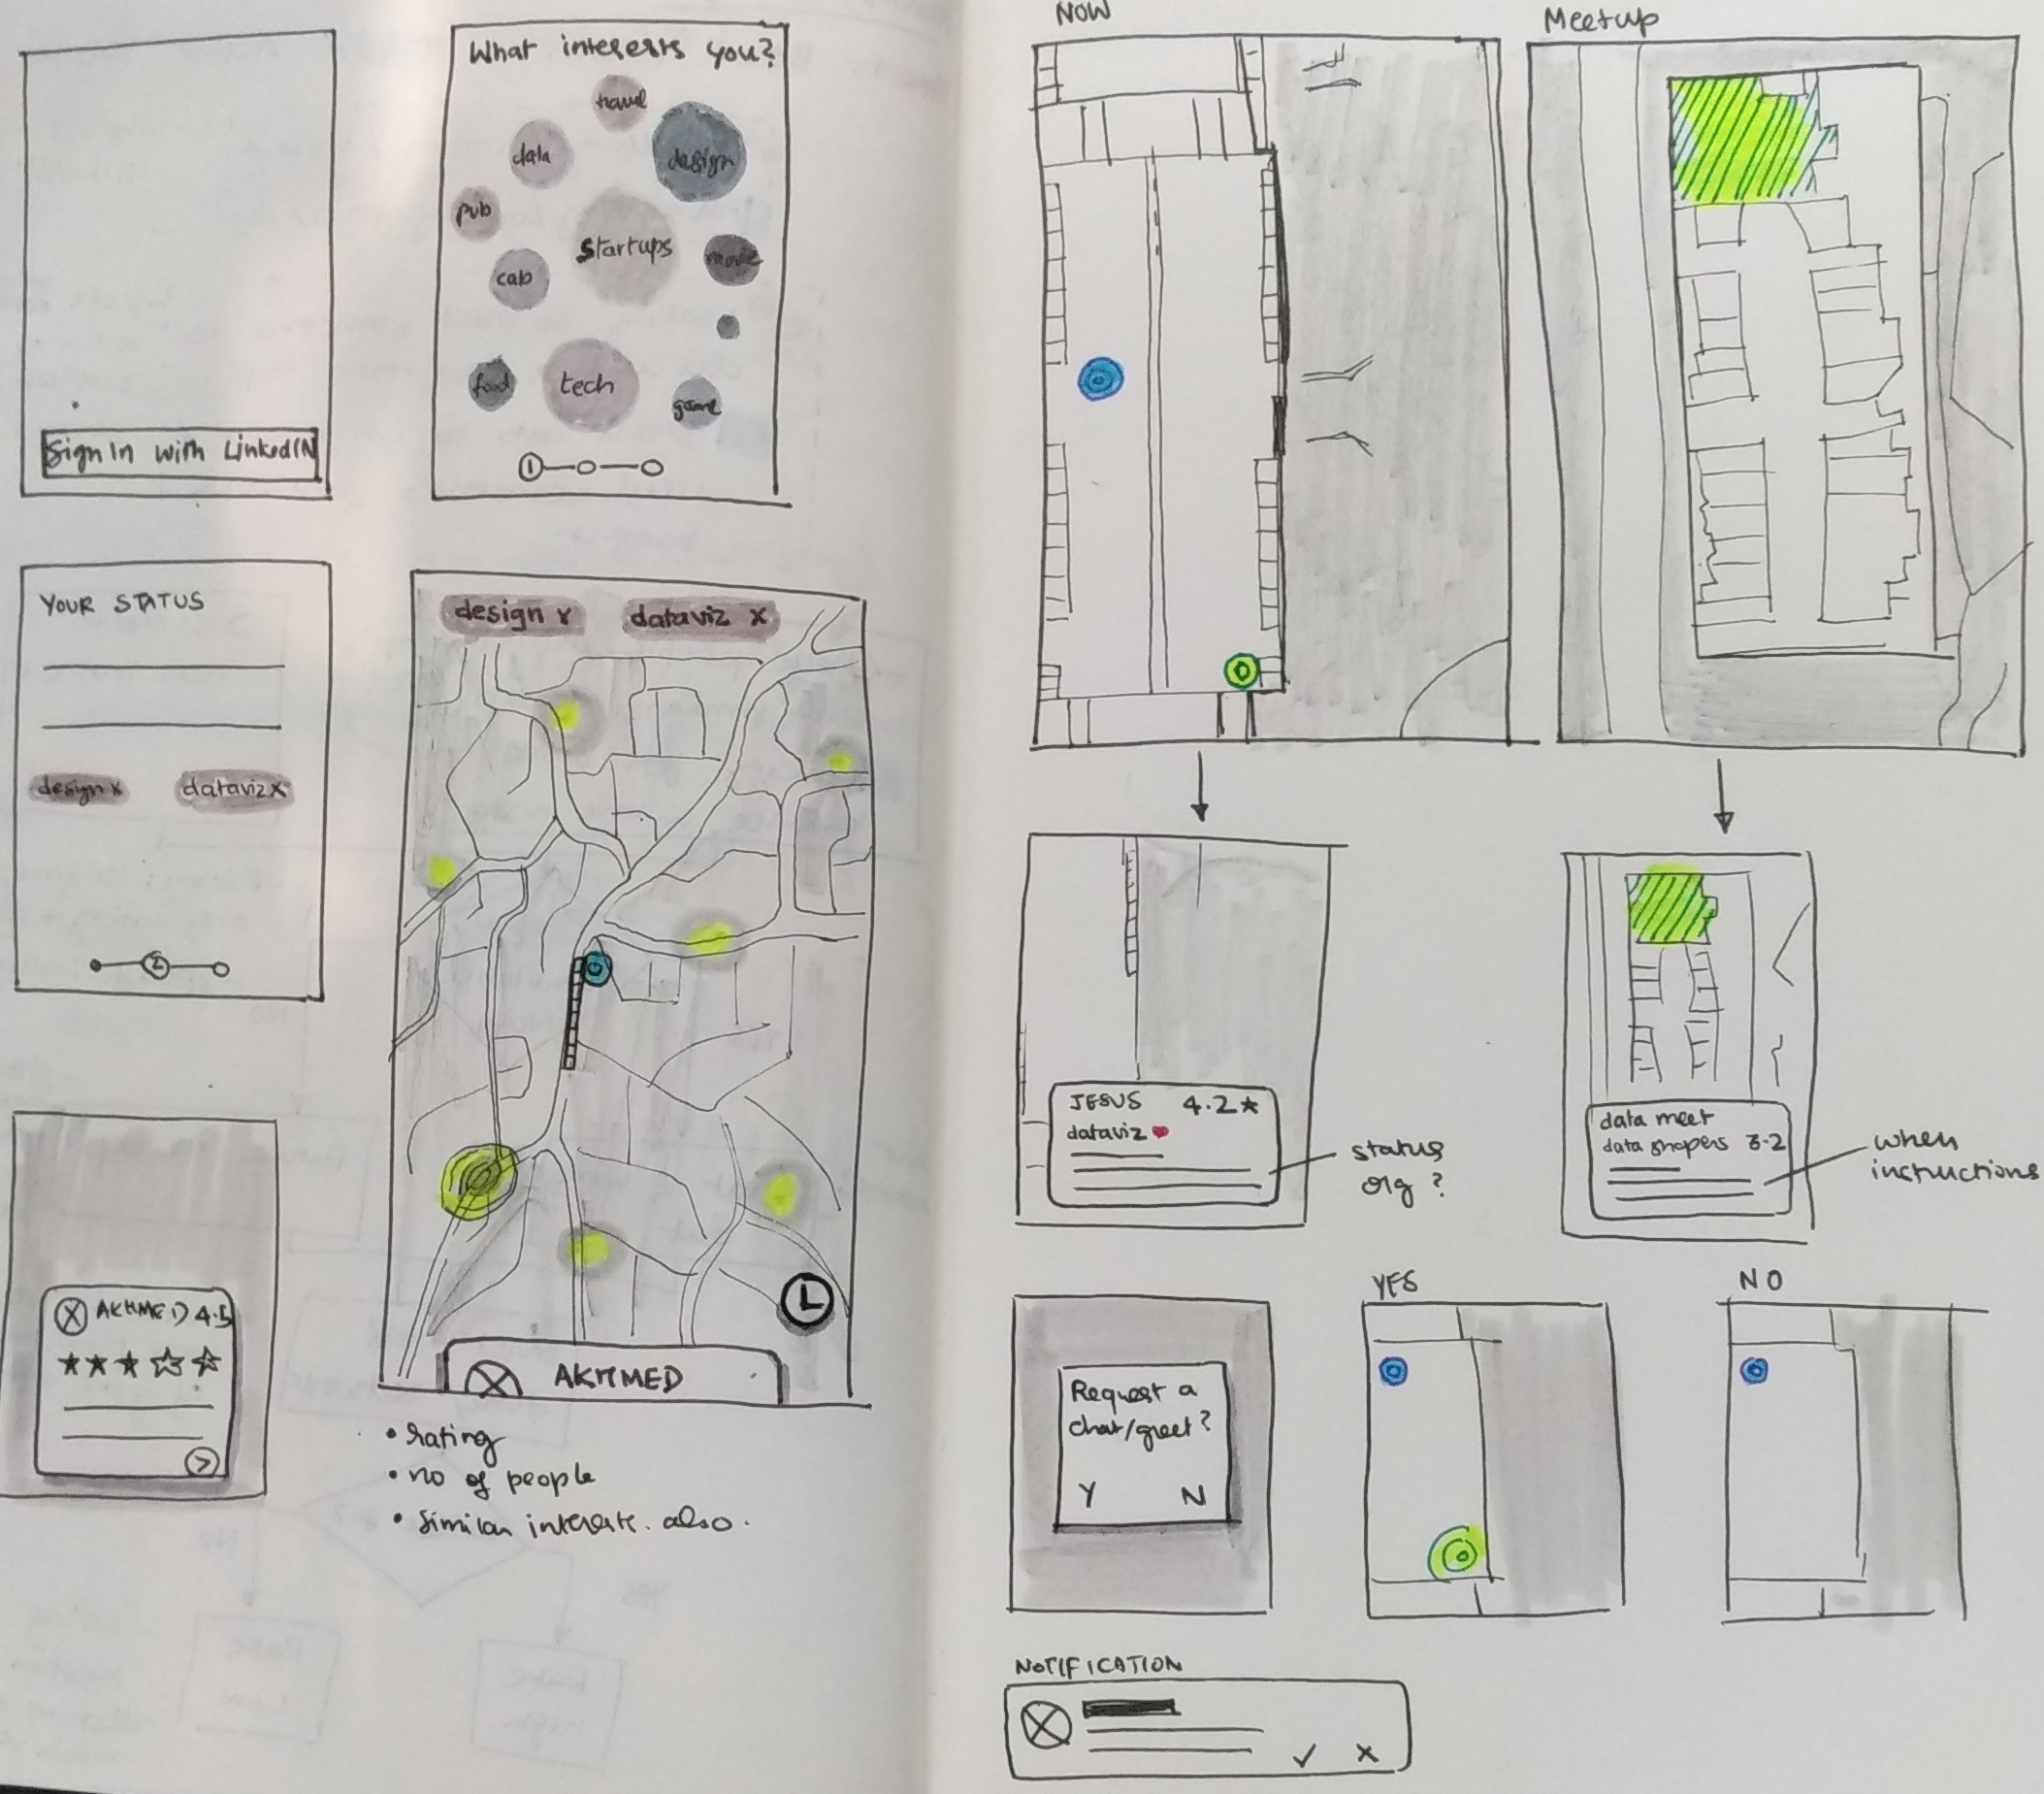 Sign In with LinkedIN
What interests you?
travel
data
design
pub
startups
movie
cab
food
tech
game
1
YOUR STATUS
design x
dataviz x
2
design x
dataviz x
AKHMED
AKHMED 4.5
• rating
• no of people
• similar interests. also.
NOW
Meetup
JESUS 4.2★
dataviz ♥
status
org ?
data meet
data shapers 3.2
when
instructions
Request a
chat/greet?
Y N
YES
NO
NOTIFICATION